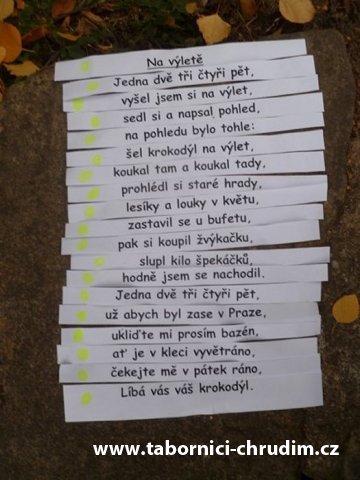 Na výletě
Jedna dvě tři čtyři pět,
vyšel jsem si na výlet,
sedl si a napsal pohled,
na pohledu bylo tohle:
šel krokodýl na výlet,
koukal tam a koukal tady,
prohlédl si staré hrady,
lesíky a louky v květu,
zastavil se u bufetu,
pak si koupil žvýkačku,
slupl kilo špekáčků,
hodně jsem se nachodil.
Jedna dvě tři čtyři pět,
už abych byl zase v Praze,
ukliďte mi prosím bazén,
ať je v kleci vyvětráno,
čekejte mě v pátek ráno,
Líbá vás váš krokodýl.
www.tabornici-chrudim.cz